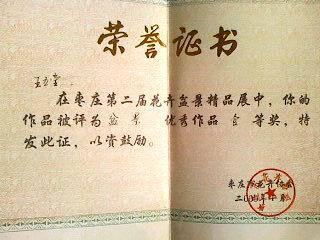 荣誉证书
在枣庄第二届花卉盆景精品展中，你的
作品被评为盆景 优秀作品 等奖，特
发此证，以资鼓励。
枣庄